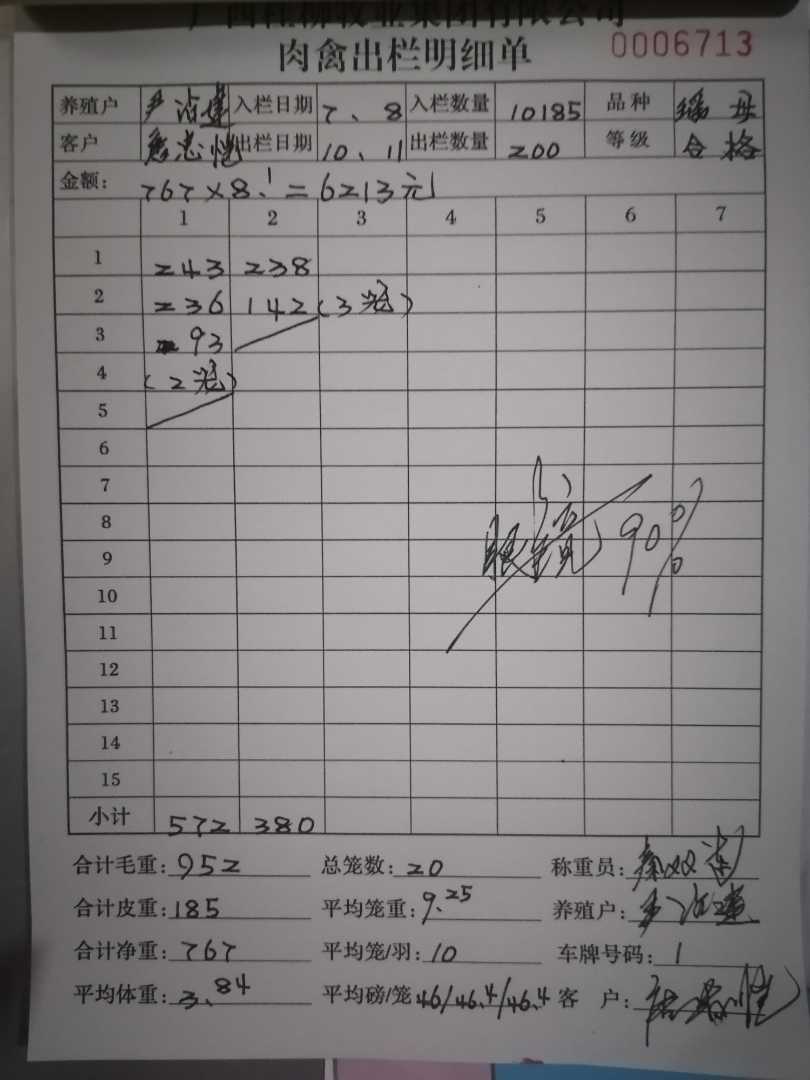 广西桂柳牧业集团有限公司
肉禽出栏明细单 0006713
养殖户 入栏日期 7、8 入栏数量 10185 品种 瑶母
客户 出栏日期 10、11 出栏数量 200 等级 合格
金额: 767×8.1=6213元
1 2 3 4 5 6 7
1 243 238
2 236 142(3笼)
3 93
4 (2笼)
5
6
7
8
9 眼镜 90%
10
11
12
13
14
15
小计 572 380
合计毛重: 952 总笼数: 20 称重员:
合计皮重: 185 平均笼重: 9.25 养殖户:
合计净重: 767 平均笼/羽: 10 车牌号码: 1
平均体重: 3.84 平均磅/笼 46/46.4/46.4 客 户: